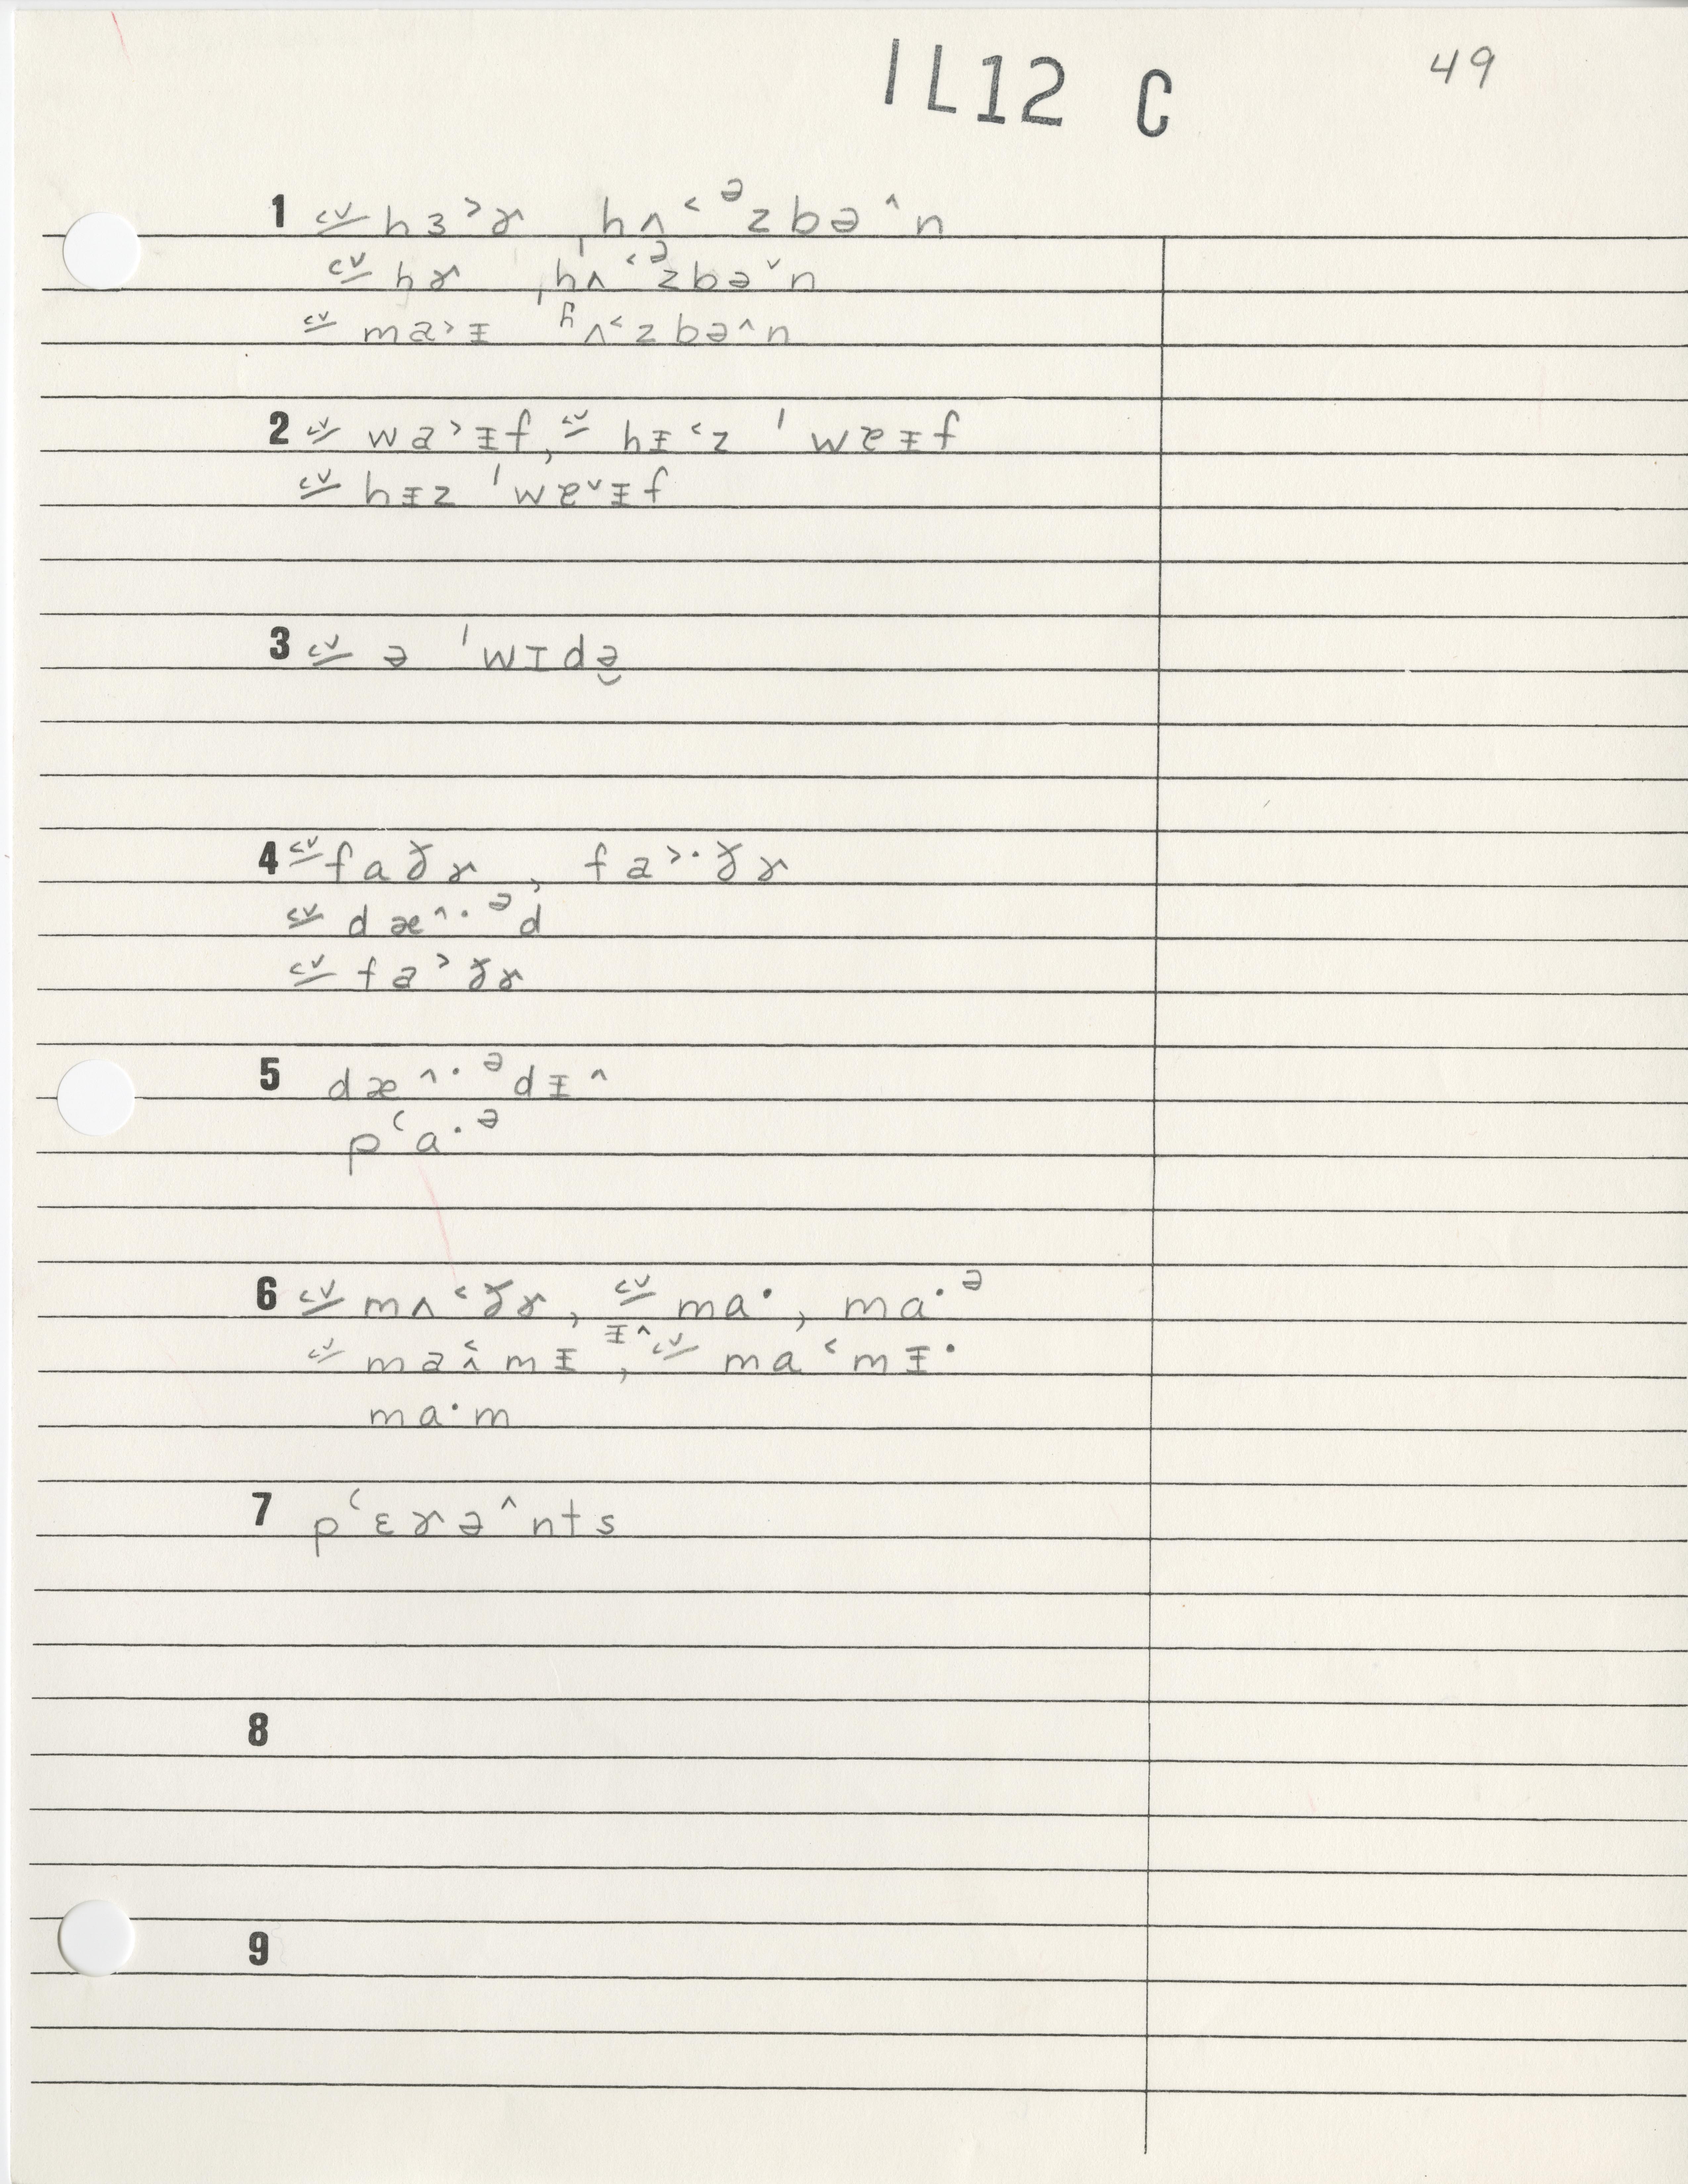 IL12 C 49
1 cv h ɜ˃ ɚ hʌ˂ᵊzbə˄n
cv hɚ ˌˈhʌ˂ᵊzbə˅n
cv ma˃ɪ ˈhʌ˂zbə˄n
2 cv wa˃ᵻf, cv hᵻ˂z ˈwɐᵻf
cv hᵻz ˈwɐ˅ᵻf
3 cv ə ˈwɪdə̯
4 cv faðɚ, fa˃·ðɚ
cv dæ˄·ᵊd
cv fa˃ðɚ
5 dæ˄·ᵊdᵻ˄
pʻa·ᵊ
6 cv mʌ˂ðɚ, cv ma·, ma·ᵊ
cv ma˂˄mᵻ ᵻ˄, cv ma˂mᵻ·
ma·m
7 pʻɛɚə˄nts
8
9